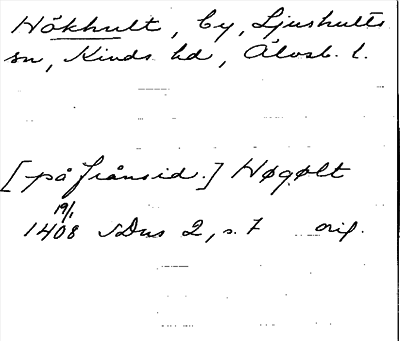 Hökhult, by, Ljushults
sn, Kinds hd, Älvsb. l.
[på frånsid.] Høgølt
19/1
1408 SDns 2, s. 7 orig.